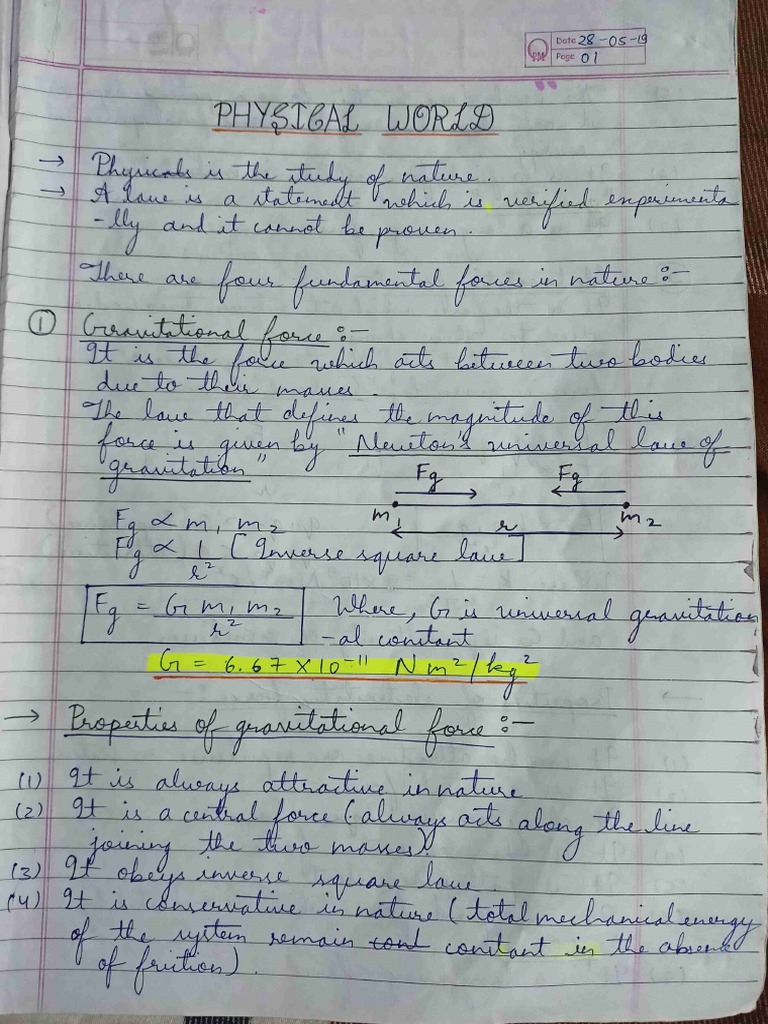 Date 28-05-19
Page 01
PHYSICAL WORLD
→ Physicals is the study of nature.
→ A law is a statement which is verified experimenta
-lly and it cannot be proven.
There are four fundamental forces in nature :-
① Gravitational force :-
It is the force which acts between two bodies
due to their masses.
The law that defines the magnitude of this
force is given by "Newton's universal law of
gravitation"
Fg Fg
m1 r m2
Fg ∝ m1 m2
Fg ∝ 1/r² [Inverse square law]
Fg = G m1 m2 / r² Where, G is universal gravitation
-al constant
G = 6.67 × 10⁻¹¹ N m² / kg²
→ Properties of gravitational force :-
(1) It is always attractive in nature
(2) It is a central force (always acts along the line
joining the two masses).
(3) It obeys inverse square law.
(4) It is conservative in nature (total mechanical energy
of the system remain const constant in the absence
of friction).